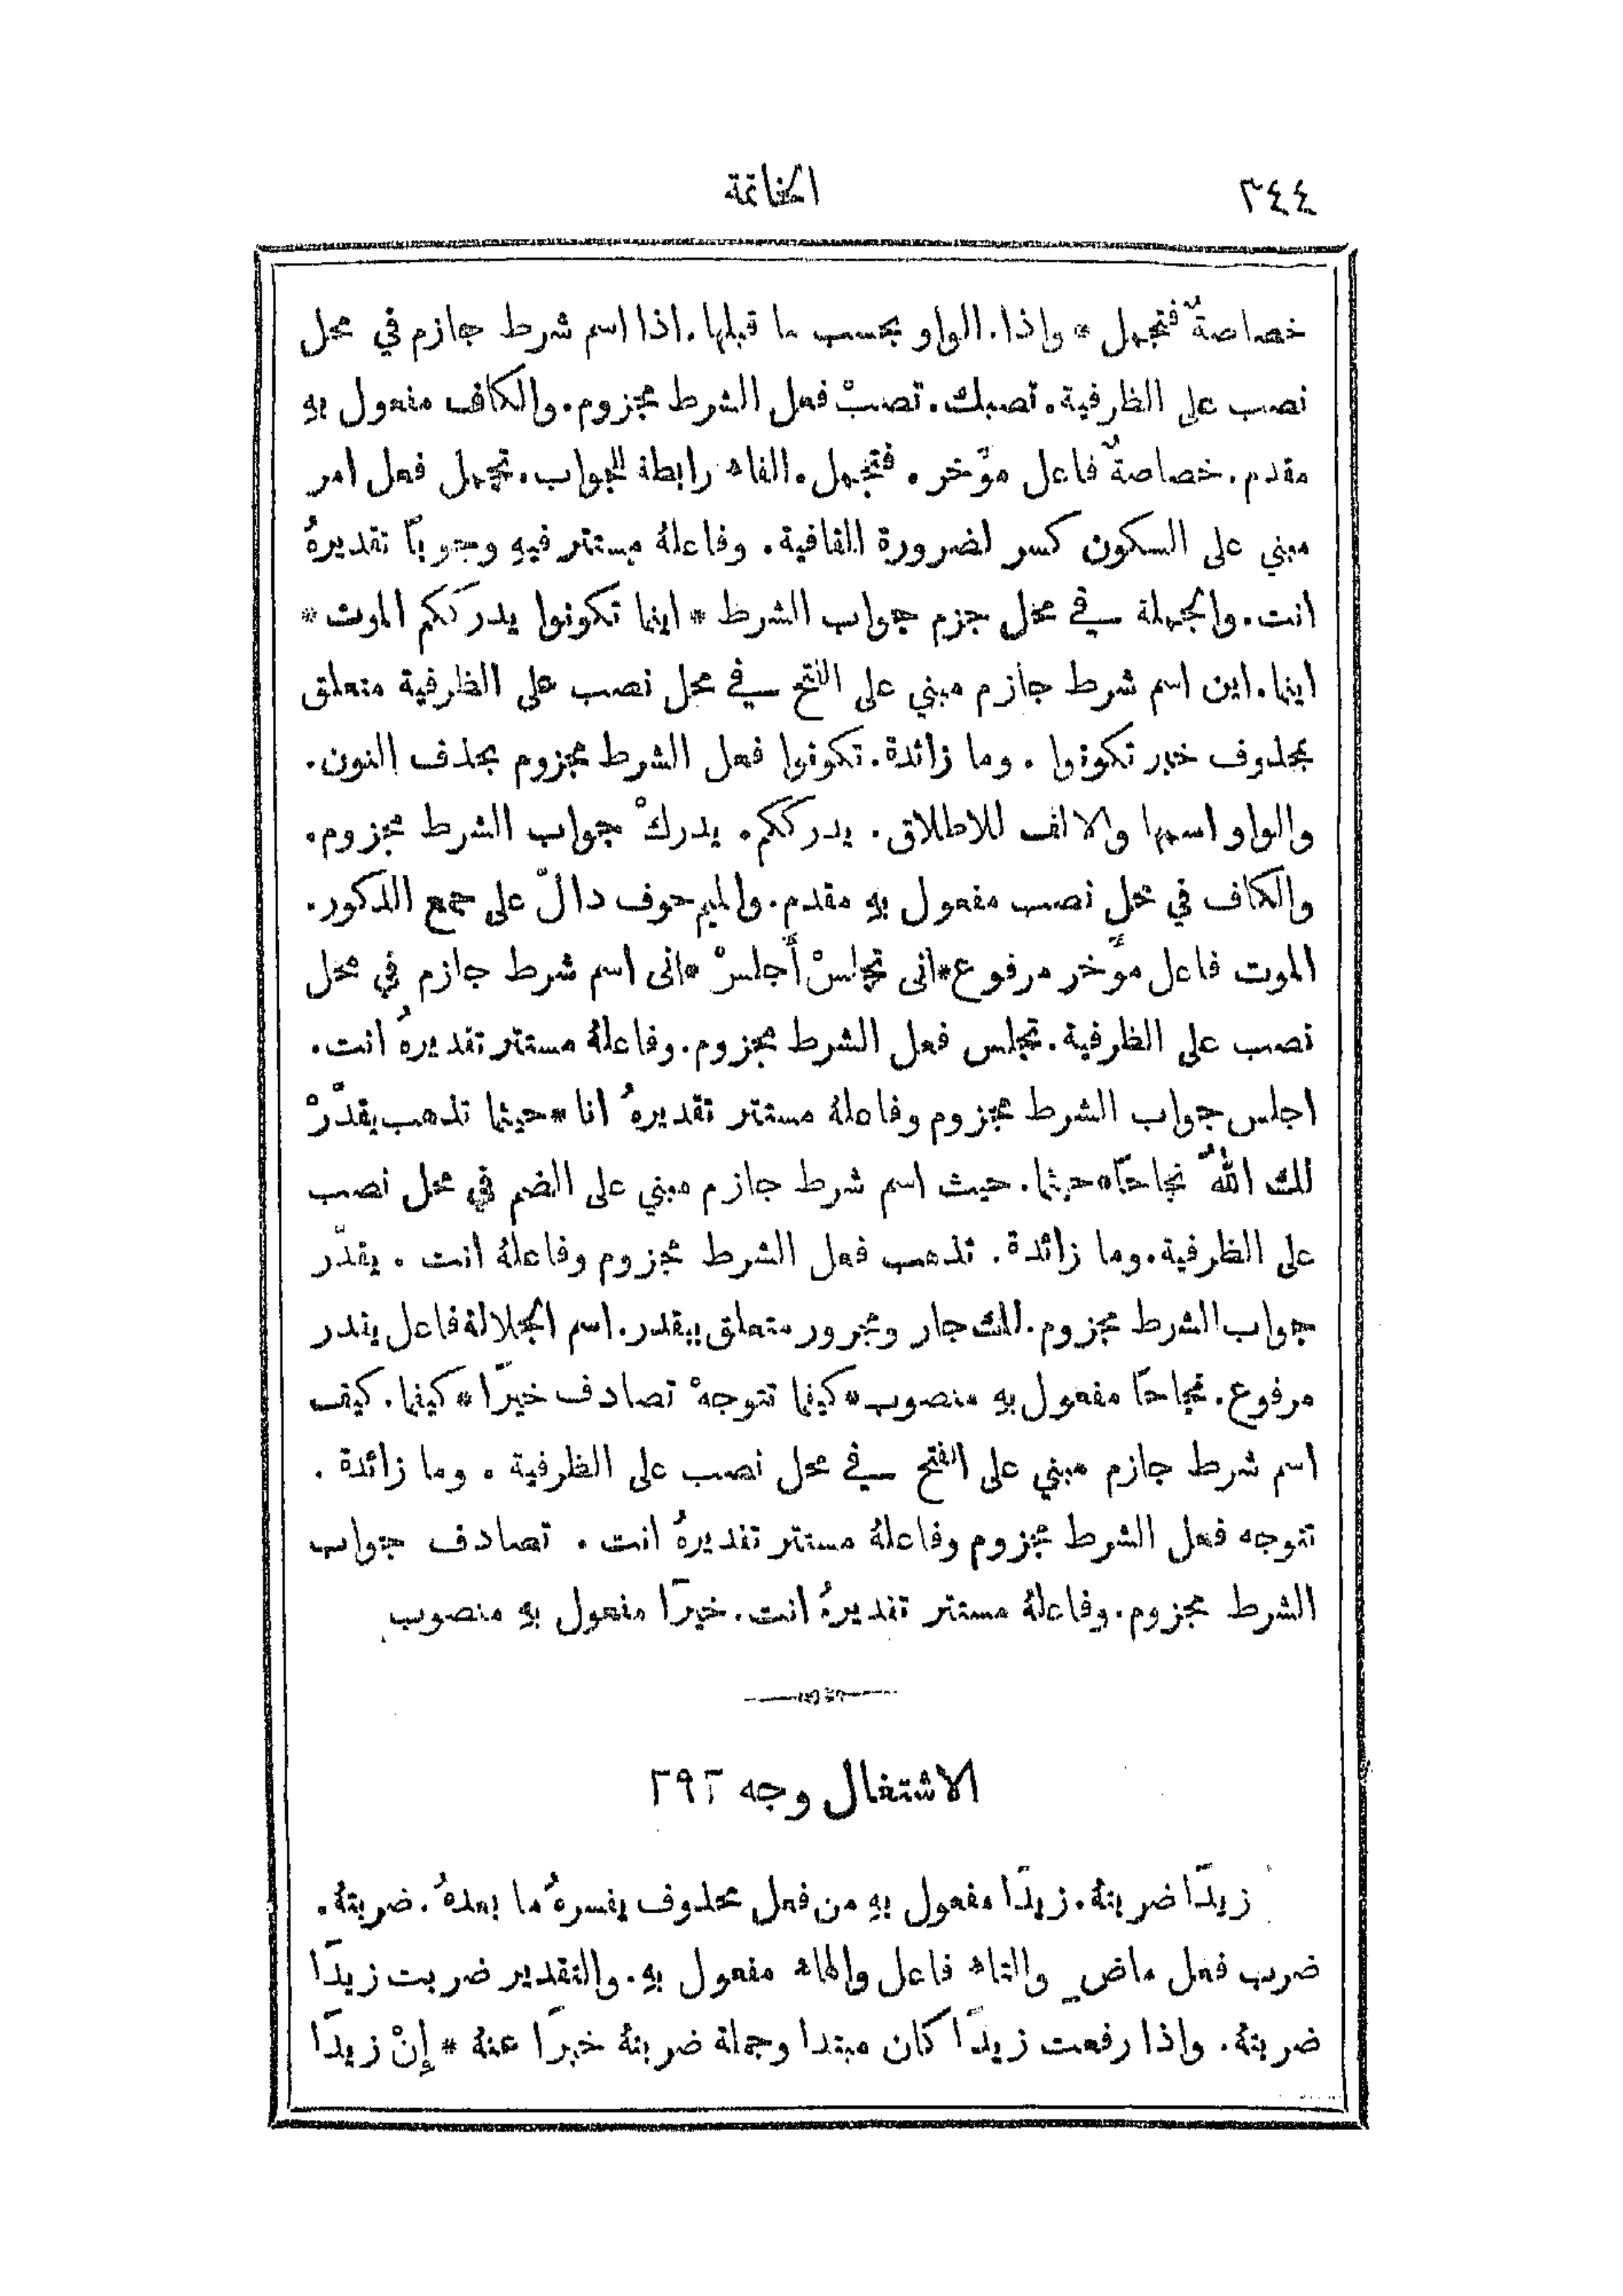 ٣٤٤
الخاتمة
خصاصةٌ فتجمل * واذا. الواو بحسب ما قبلها. اذا اسم شرط جازم في محل
نصب على الظرفية. تصبك. تصبْ فعل الشرط مجزوم. والكاف مفعول بهِ
مقدم. خصاصةٌ فاعل موَّخر. فتجمل. الفاء رابطة للجواب. تجمل فعل امر
مبني على السكون كسر لضرورة القافية. وفاعلهُ مستتر فيهِ وجوبًا تقديرهُ
انت. والجملة في محل جزم جواب الشرط * اينما تكونوا يدرككم الموت *
اينما. اين اسم شرط جازم مبني على الفتح في محل نصب على الظرفية متعلق
بمحذوف خبر تكونوا. وما زائدة. تكونوا فعل الشرط مجزوم بحذف النون.
والواو اسمها والالف للاطلاق. يدرككم. يدركْ جواب الشرط مجزوم.
والكاف في محل نصب مفعول بهِ مقدم. والميم حرف دالّ على جمع الذكور.
الموت فاعل موَّخر مرفوع * انى تجلسْ أَجلسْ * انى اسم شرط جازم في محل
نصب على الظرفية. تجلس فعل الشرط مجزوم. وفاعلهُ مستتر تقديرهُ انت.
اجلس جواب الشرط مجزوم وفاعلهُ مستتر تقديرهُ انا * حيثما تذهب يقدّرْ
لك اللهُ نجاحًا * حيثما. حيث اسم شرط جازم مبني على الضم في محل نصب
على الظرفية. وما زائدة. تذهب فعل الشرط مجزوم وفاعلهُ انت. يقدّر
جواب الشرط مجزوم. لك جار ومجرور متعلق بيقدر. اسم الجلالة فاعل يقدر
مرفوع. نجاحًا مفعول بهِ منصوب * كيفما تتوجهْ تصادف خيرًا * كيفما. كيف
اسم شرط جازم مبني على الفتح في محل نصب على الظرفية. وما زائدة.
تتوجه فعل الشرط مجزوم وفاعلهُ مستتر تقديرهُ انت. تصادف جواب
الشرط مجزوم. وفاعلهُ مستتر تقديرهُ انت. خيرًا مفعول بهِ منصوب
الاشتغال وجه ٢٩٢
زيدًا ضربتهُ. زيدًا مفعول بهِ من فعل محذوف يفسرهُ ما بعدهُ. ضربتهُ.
ضرب فعل ماضٍ والتاء فاعل والهاء مفعول بهِ. والتقدير ضربت زيدًا
ضربتهُ. واذا رفعت زيدًا كان مبتدا وجملة ضربتهُ خبرًا عنهُ * إِنْ زيدًا